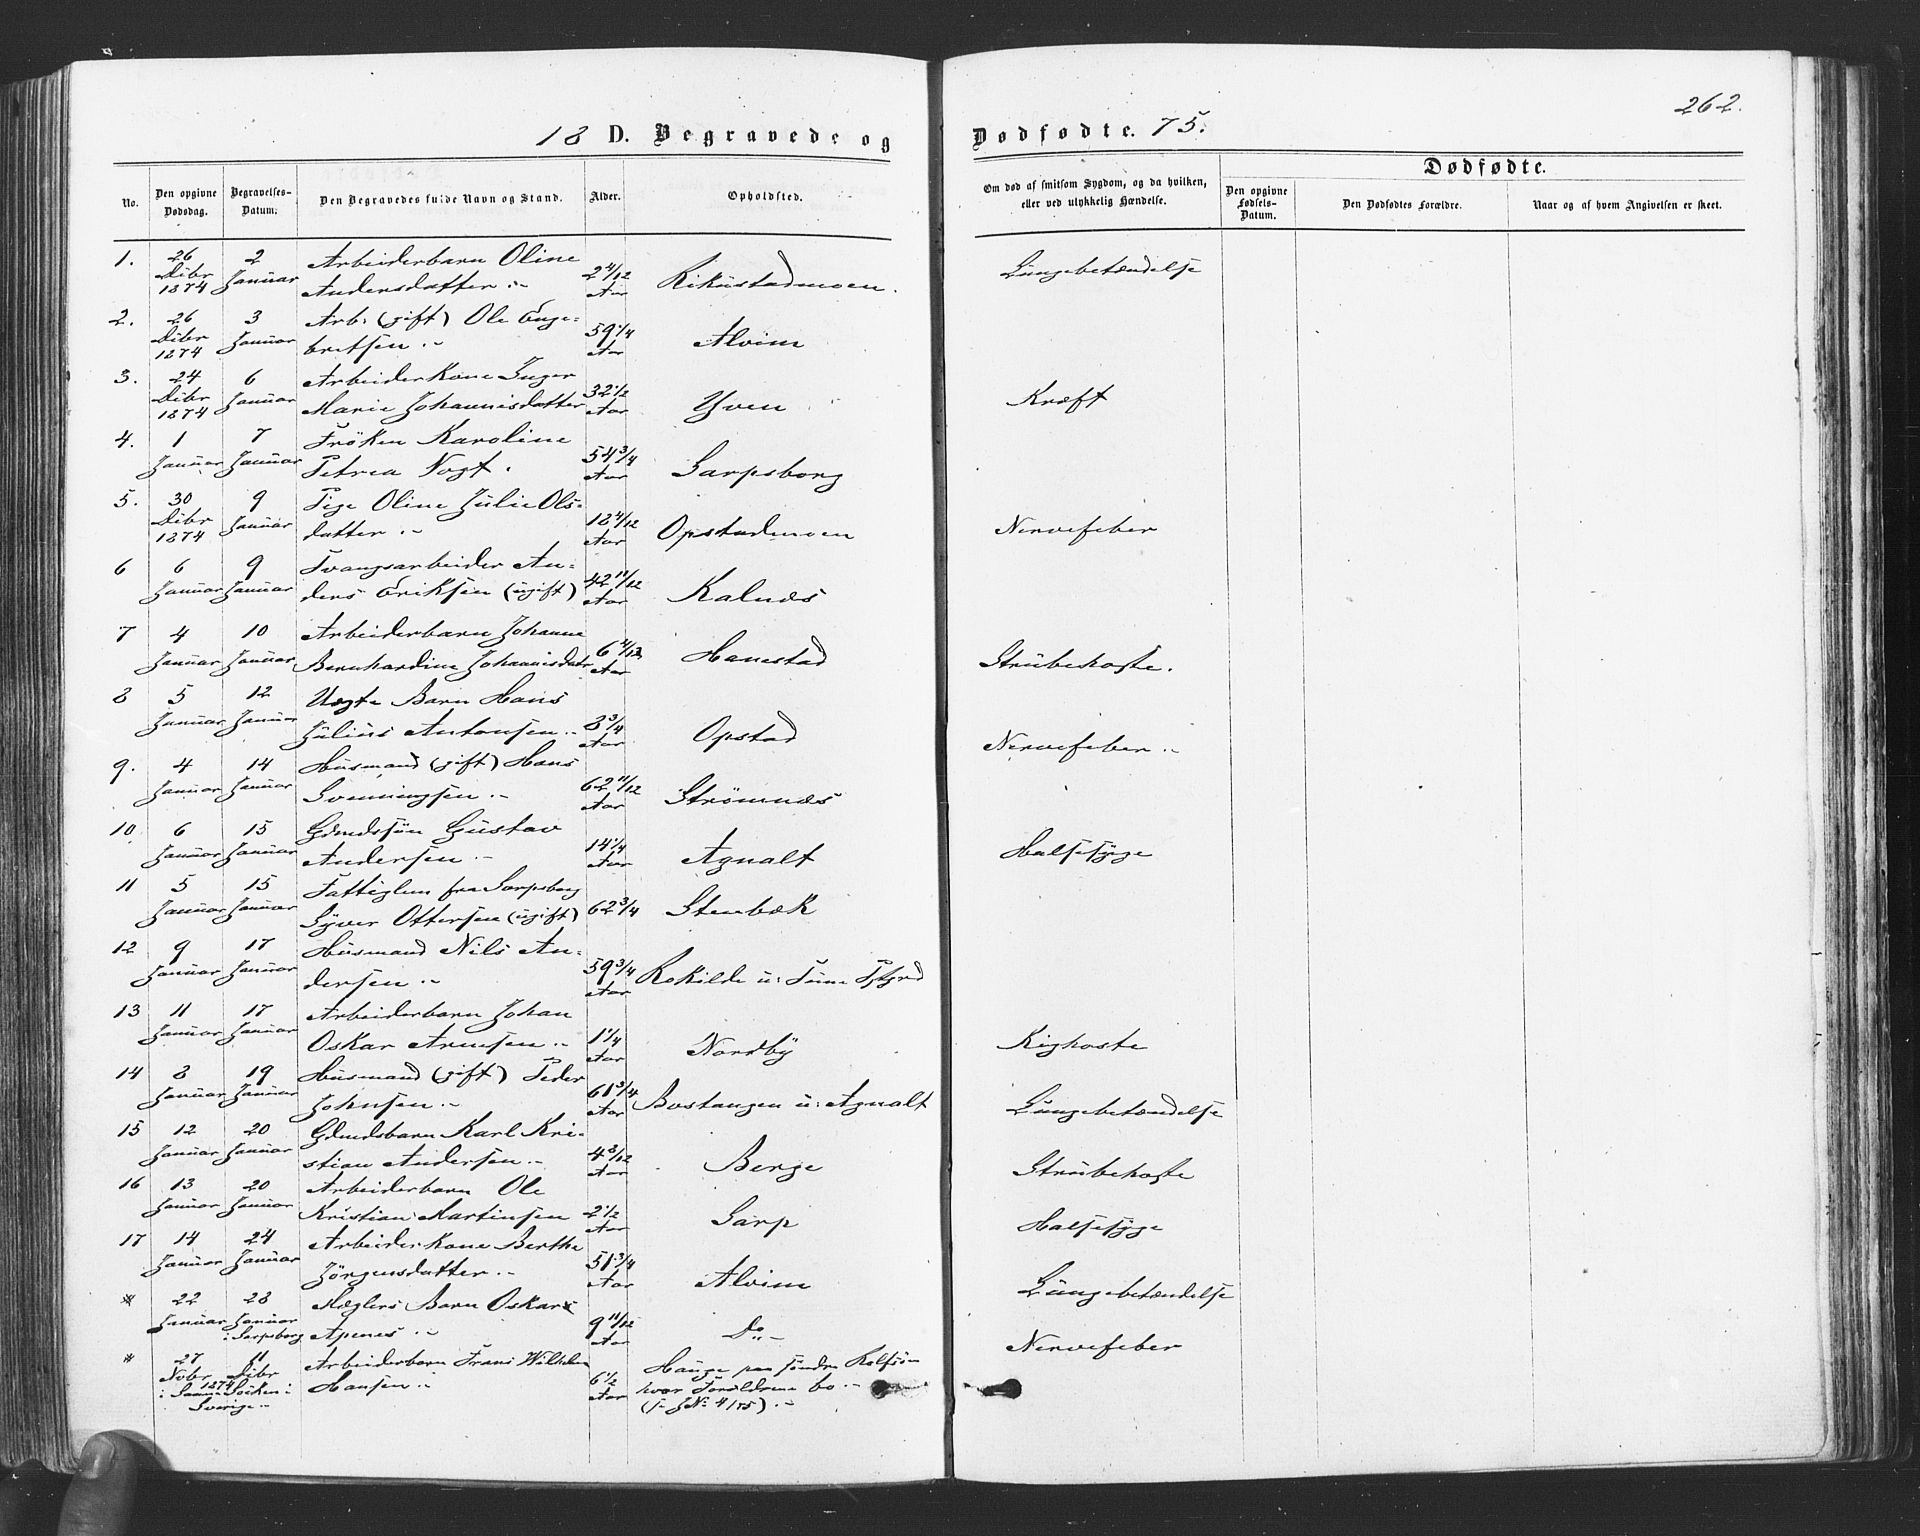 262.
18 D. Begravede og Dødfødte. 75.
Dødfødte.
No. Den opgivne Dødsdag. Begravelses-Datum. Den Begravedes fulde Navn og Stand. Alder. Opholdsted. Om død af smitsom Sygdom, og da hvilken, eller ved ulykkelig Hændelse. Den opgivne Fødsels-Datum. Den Dødfødtes Forældre. Naar og af hvem Angivelsen er skeet.
1. 26 2 Arbeiderbarn Oline
Dcbr 1874 Januar Andersdatter .- 2 4/12 Aar Rikustadmoen. Lungebetændelse
2. 26 3 Arb: (gift) Ole Enge-
Dcbr 1874 Januar bretsen .- 59 1/4 Aar Alvim
3. 24 6 Arbeiderkone Inger
Dcbr 1874 Januar Marie Johannisdatter 32 1/2 Aar Yven Kræft
4. 1 7 Frøken Karoline
Januar Januar Petrea Vogt. 54 3/4 Aar Sarpsborg
5. 30 9 Pige Oline Julie Ols-
Dcbr 1874 Januar datter .- 18 4/12 Aar Opstadmoen Nervefeber
6 6 9 Tvangsarbeider An-
Januar Januar ders Eriksen (ugift) 42 11/12 Aar Kalnæs
7 4 10 Arbeiderbarn Johanne
Januar Januar Bernhardine Johannisdatr 6 Aar Hanestad Strubehoste.
8 5 12 Uægte Barn Hans
Januar Januar Julius Antonsen .- 8 3/4 Aar Opstad Nervefeber .-
9. 4 14 Husmand (gift) Hans
Januar Januar Svenningsen .- 62 11/12 Aar Strømnæs
10 6 15 Gdmdssøn Gustav
Januar Januar Andersen .- 14 1/4 Aar Agnalt Halsesyge
11 5 15 Fattiglem fra Sarpsborg
Januar Januar Syver Ottersen (ugift) 62 3/4 Stenbæk
12 9 17 Husmand Nils An-
Januar Januar dersen .- 59 3/4 Aar Rokilde u: Tune
13 11 17 Arbeiderbarn Johan
Januar Januar Oskar Arnesen .- 1 1/4 Aar Nordby Kighoste
14 8 19 Husmand (gift) Peder
Januar Januar Johnsen .- 61 3/4 Aar Bostangen u: Agnalt Lungebetændelse
15 12 20 Gdmdsbarn Karl Kri-
Januar Januar stian Andersen .- 4 3/12 Aar Berge Strubehoste
16 13 20 Arbeiderbarn Ole
Januar Januar Kristian Martinsen 2 1/2 Aar Sarp Halsesyge
17 14 24 Arbeiderkone Berthe
Januar Januar Jørgensdatter .- 51 3/4 Aar Alvim Lungebetændelse
* 22 28 Mæglers Barn Oskar
Januar Januar i Sarpsborg Apenes .- 9 11/12 Aar Do - Nervefeber
* 27 11 Arbeiderbarn Frans Wilhelm
Novbr 1874 Dcbr Hansen .- 6 1/2 Aar Hauge paa søndre Rolfsøn
Sverige .- hvor Forældrene bo .-
(se JNo 4/75) .-